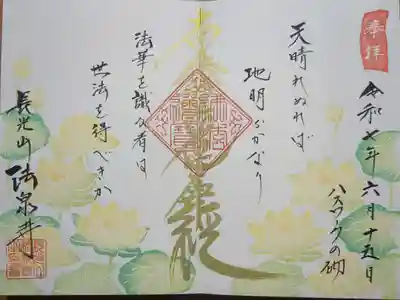 奉拝
令和七年六月十五日
の砌
天晴れぬれば
地明らかなり
南無妙法蓮華経
法華を識る者は
世法を得べきか
長光山